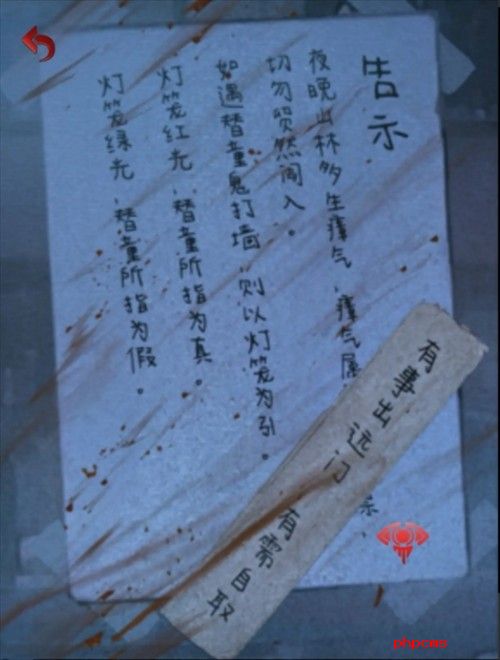 告示
夜晚山林多生瘴气，瘴气属
切勿贸然闯入。
如遇替童鬼打墙，则以灯笼为引。
灯笼红光，替童所指为真。
灯笼绿光，替童所指为假。
有事出远门
有需自取
phpcms